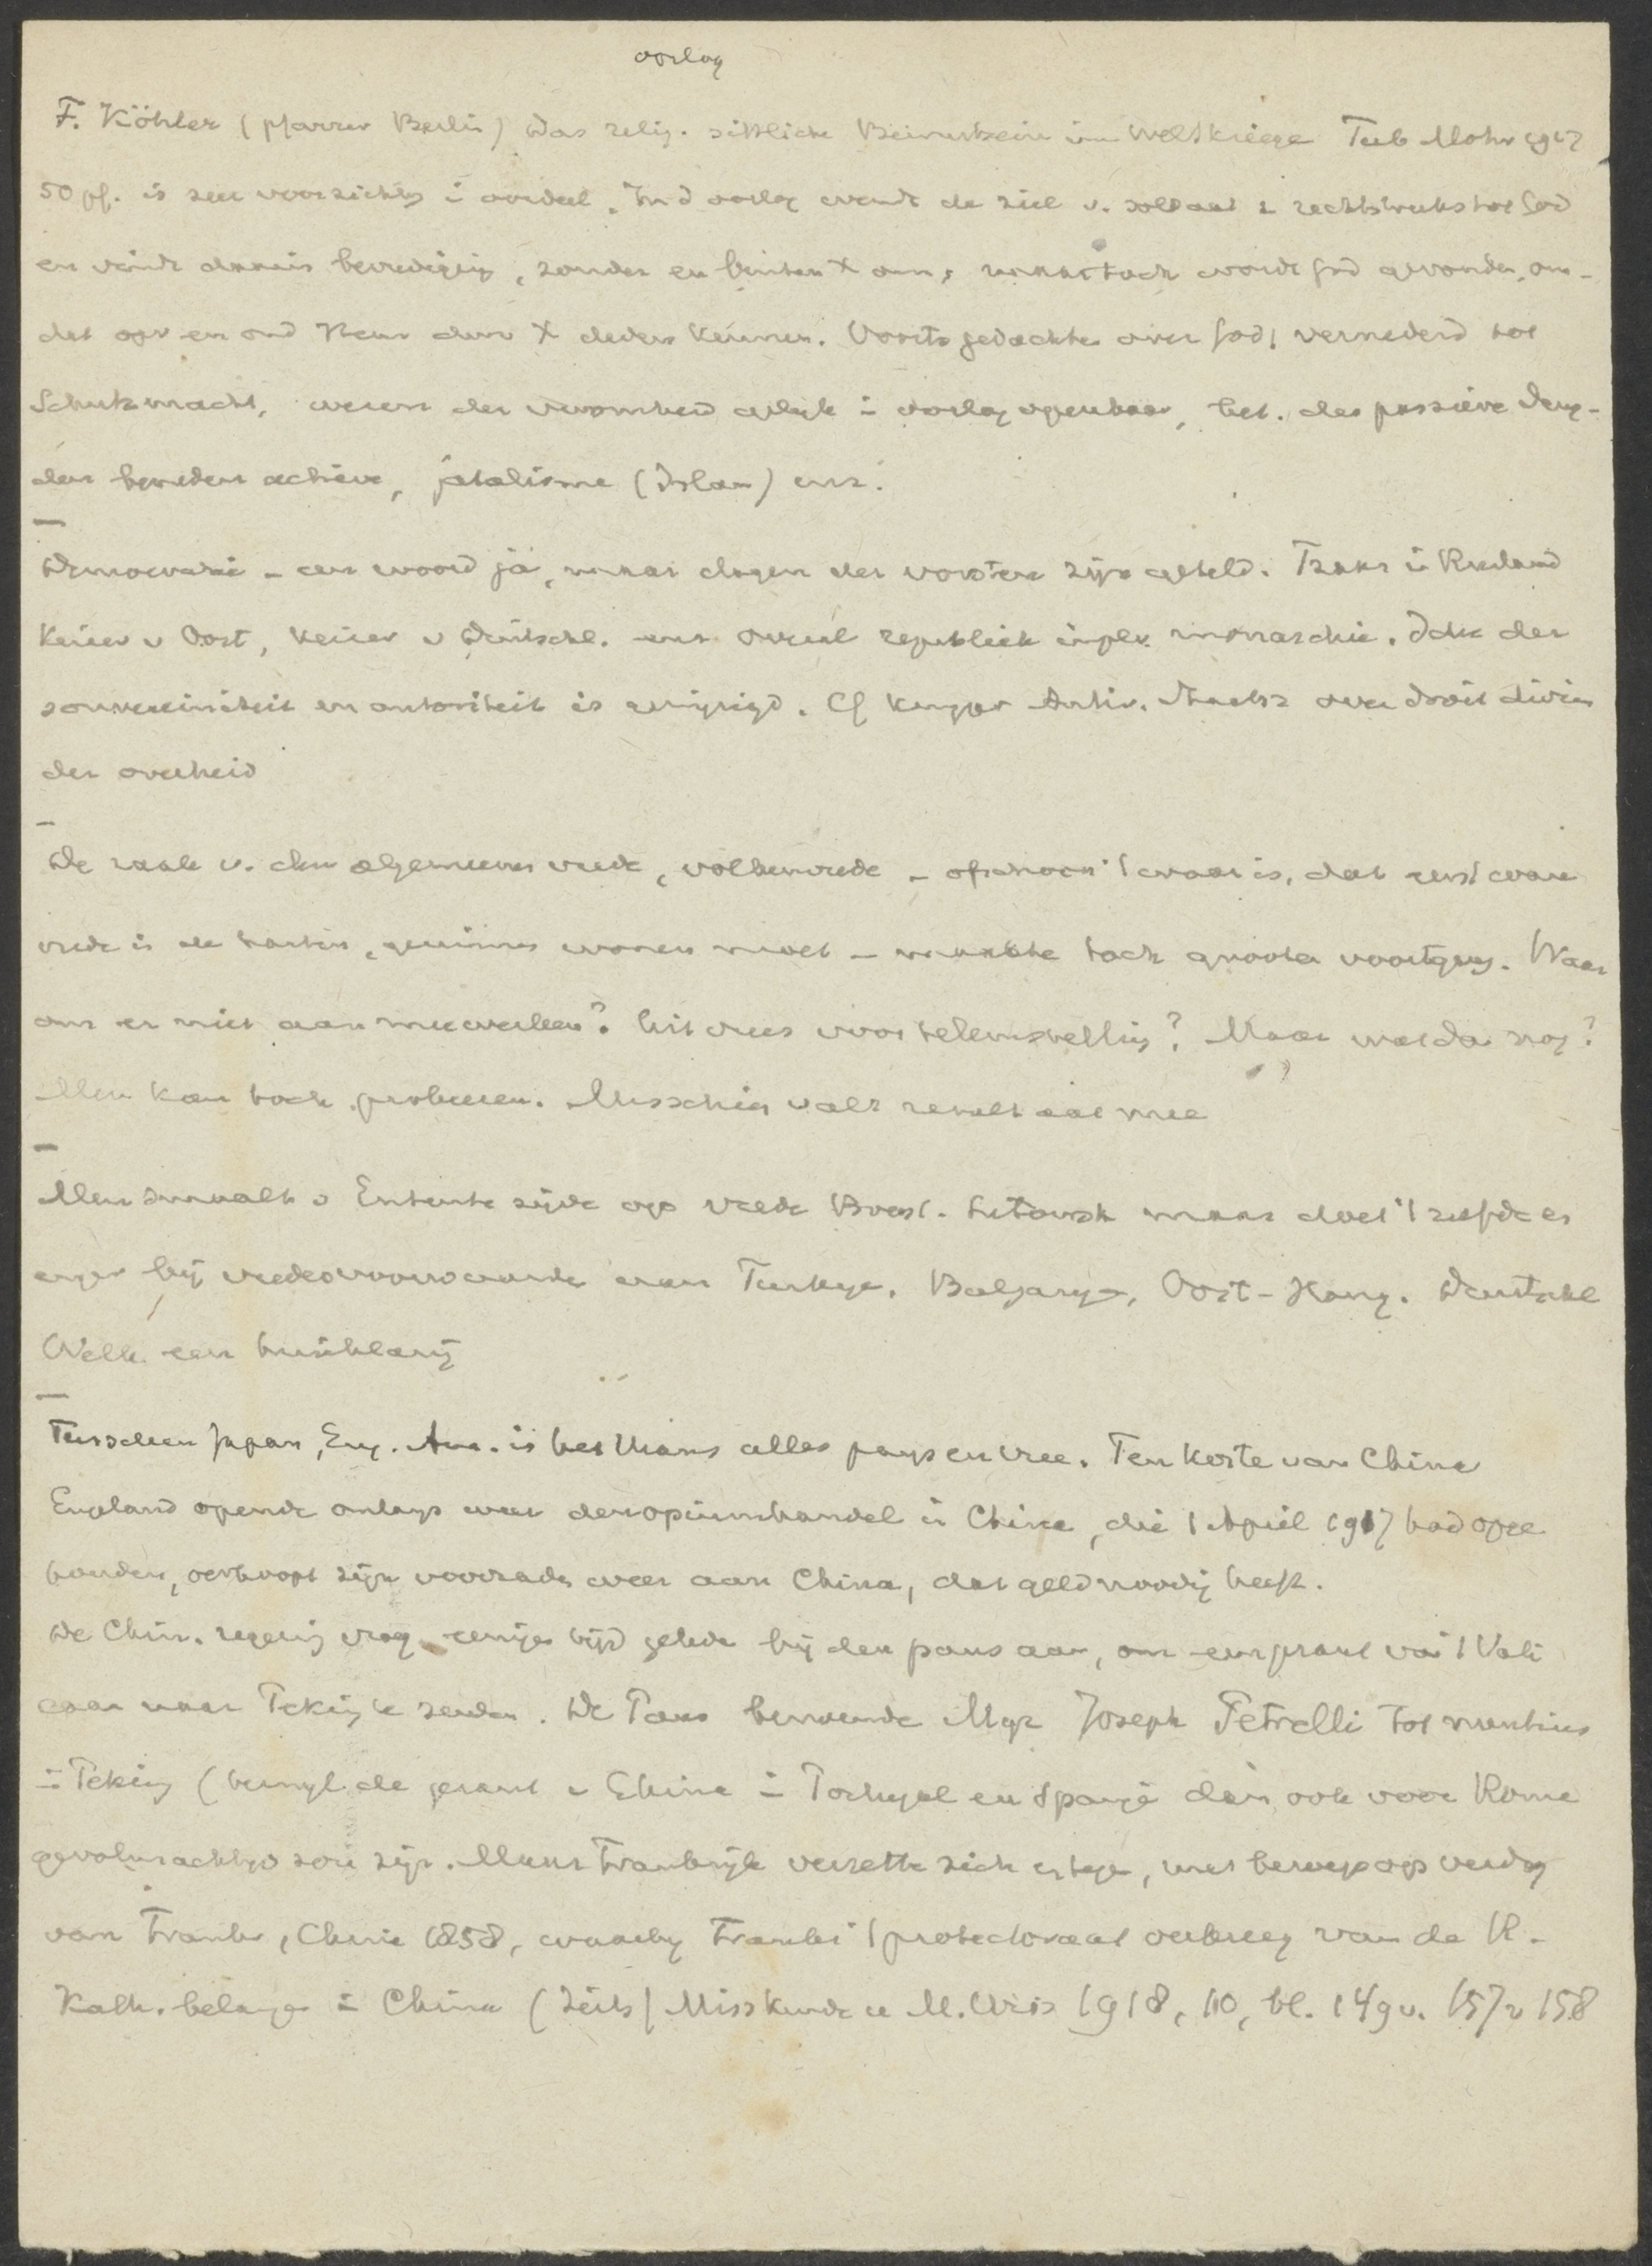 oorlog
F. Köhler (Pfarrer Berlin) Das relig. sittliche Bewustsein im Weltkriege Tub Mohr 1917
50 pf. is zeer voorzichtig i oordeel. In d oorlog wendt de ziel v. soldaat z rechtstreeks tot God
en vindt daarin bevrediging, zonder en buiten X om, maar toch wordt God gevonden, om-
dat opv en ond Neur door X deden kennen. Voorts gedachte over God, vernederd tot
Schutzmacht, wezen der vroomheid gelijk i oorlog openbaar, bet. das passieve deug-
den beneden actieve, fatalisme (Islam) enz.
Democratie - een woord ja, maar dagen der vorsten zijn geteld. Tsaar in Rusland
Keizer v Oost, Keizer v Duitschl. enz overal republiek in plv. monarchie. Idee der
souvereiniteit en autoriteit is gewijzigd. Cf Kuyper Antir. Staatk over droit divin
der overheid
De zaak v. den algemeenen vrede, volkenvrede - ofschoon 't waar is, dat eerst ware
vrede in de harten, gezinnen wonen moet - maakte toch groote voortgang. Waar
om er niet aan meewerken? Uit vrees voor teleurstelling? Maar wat dan nog?
Men kan toch probeeren. Misschien valt resultaat mee
Men smaalt v Entente zijde op vrede Brest. Litowsk maar doet 't zelfde en
erger bij vredesvoorwaarde aan Turkye. Bulgarye, Oost-Hong. Deutschl
Welk een huichelarij
Tusschen Japan, Eng. Am. is het thans alles pays en vree. Ten koste van China
England opende onlangs weer den opiumhandel in China, die 1 April 1917 had opge
houden, verkoopt zijn voorraden weer aan China, dat geld noodig heeft.
De Chin. regering vroeg eenigen tijd geleden bij den paus aan, om een gezant van 't Vati
caan naar Peking te zenden. De Paus benoemde Mgr Joseph Petrelli tot nuntius
in Peking (terwijl de gezant v China in Portugal en Spanje dan ook voor Rome
gevolmachtigd zou zijn. Maar Frankrijk verzette zich ertegen, met beroep op verdrag
van Frankr, China 1858, waarbij Frankr 't protectoraat verkreeg van de R.
Kath. belangen in China (Zeits f Misskunde u R.Wiss 1918, 10, bl. 149 v. 157 v 158